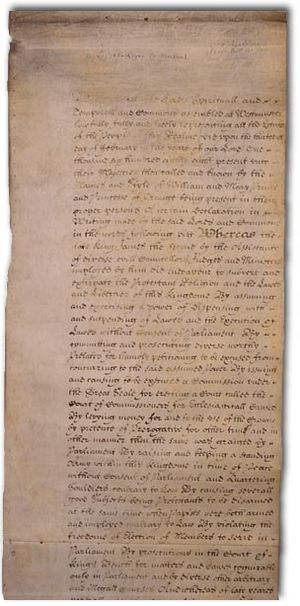 the Lords Spirituall and
Temporall and Commons assembled at Westminster
lawfully fully and freely representing all the Estates
of the People of this Realme did upon the thirteenth
day of February in the yeare of our Lord One
thousand six hundred eighty eight present unto
their Majesties then called and known by the
Names and Stile of William and Mary Prince
and Princesse of Orange being present in their
proper persons a certain Declaration in
Writing made by the said Lords and Commons
in the words following viz Whereas the
late King James the Second by the Assistance
of diverse evill Councellors Judges and Ministers
imployed by him did endeavour to subvert and
extirpate the Protestant Religion and the Lawes
and Liberties of this Kingdome By assuming
and exercising a Power of Dispensing with
and suspending of Lawes and the Execution of
Lawes without Consent of Parliament By
committing and prosecuting diverse worthy
Prelates for humbly petitioning to be excused from
concurring to the said assumed Power By issuing
and causing to be executed a Commission under
the Great Seale for erecting a Court called the
Court of Commissioners for Ecclesiasticall Causes
By levying money for and to the use of the Crowne
by pretence of Prerogative for other time and in
other manner then the same was granted by
Parliament By raising and keeping a standing
Army within this Kingdome in time of Peace
without Consent of Parliament and Quartering
Souldiers contrary to Law By causing severall
good Subjects being Protestants to be disarmed
at the same time when Papists were both armed
and imployed contrary to Law By violating the
freedome of Election of Members to serve in
Parliament By prosecutions in the Court of
Kings Bench for matters and causes cognizable
only in Parliament and by diverse other arbitrary
and illegall courses And whereas of late yeares